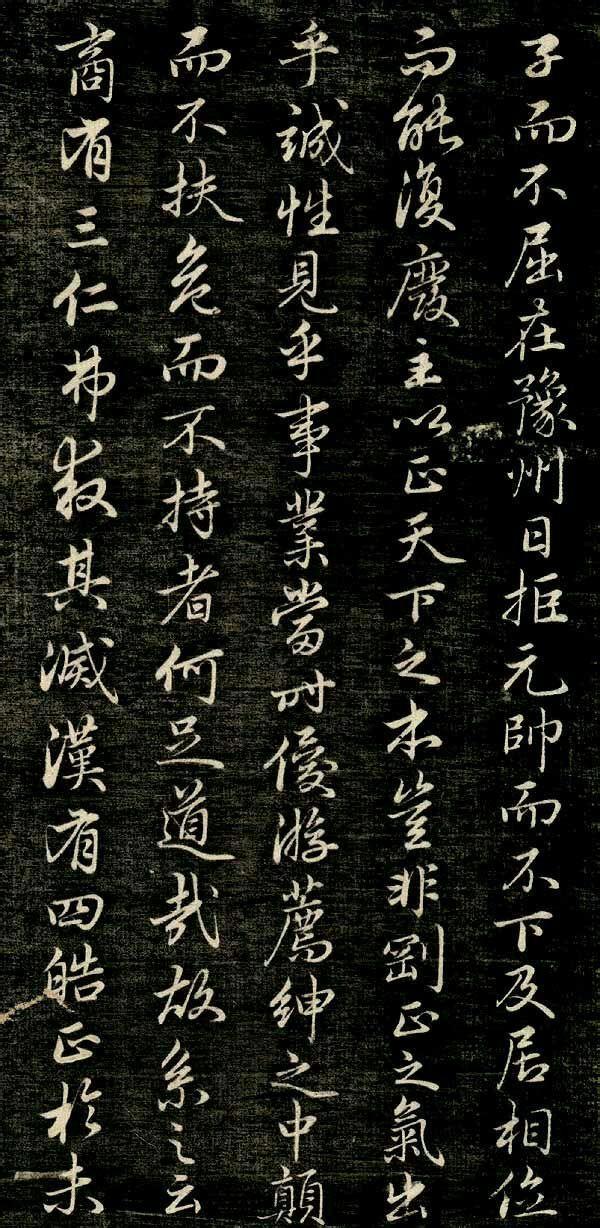 子而不屈在豫州日拒元帥而不下及居相位
而能復廢主以正天下之本豈非剛正之氣出
乎誠性見乎事業當时優游薦紳之中顛
而不扶危而不持者何足道哉故系之云
商有三仁弗救其滅漢有四皓正於未